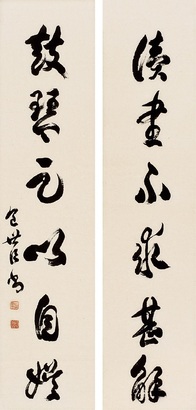 讀書不求甚解
鼓琴足以自娛
包世臣書